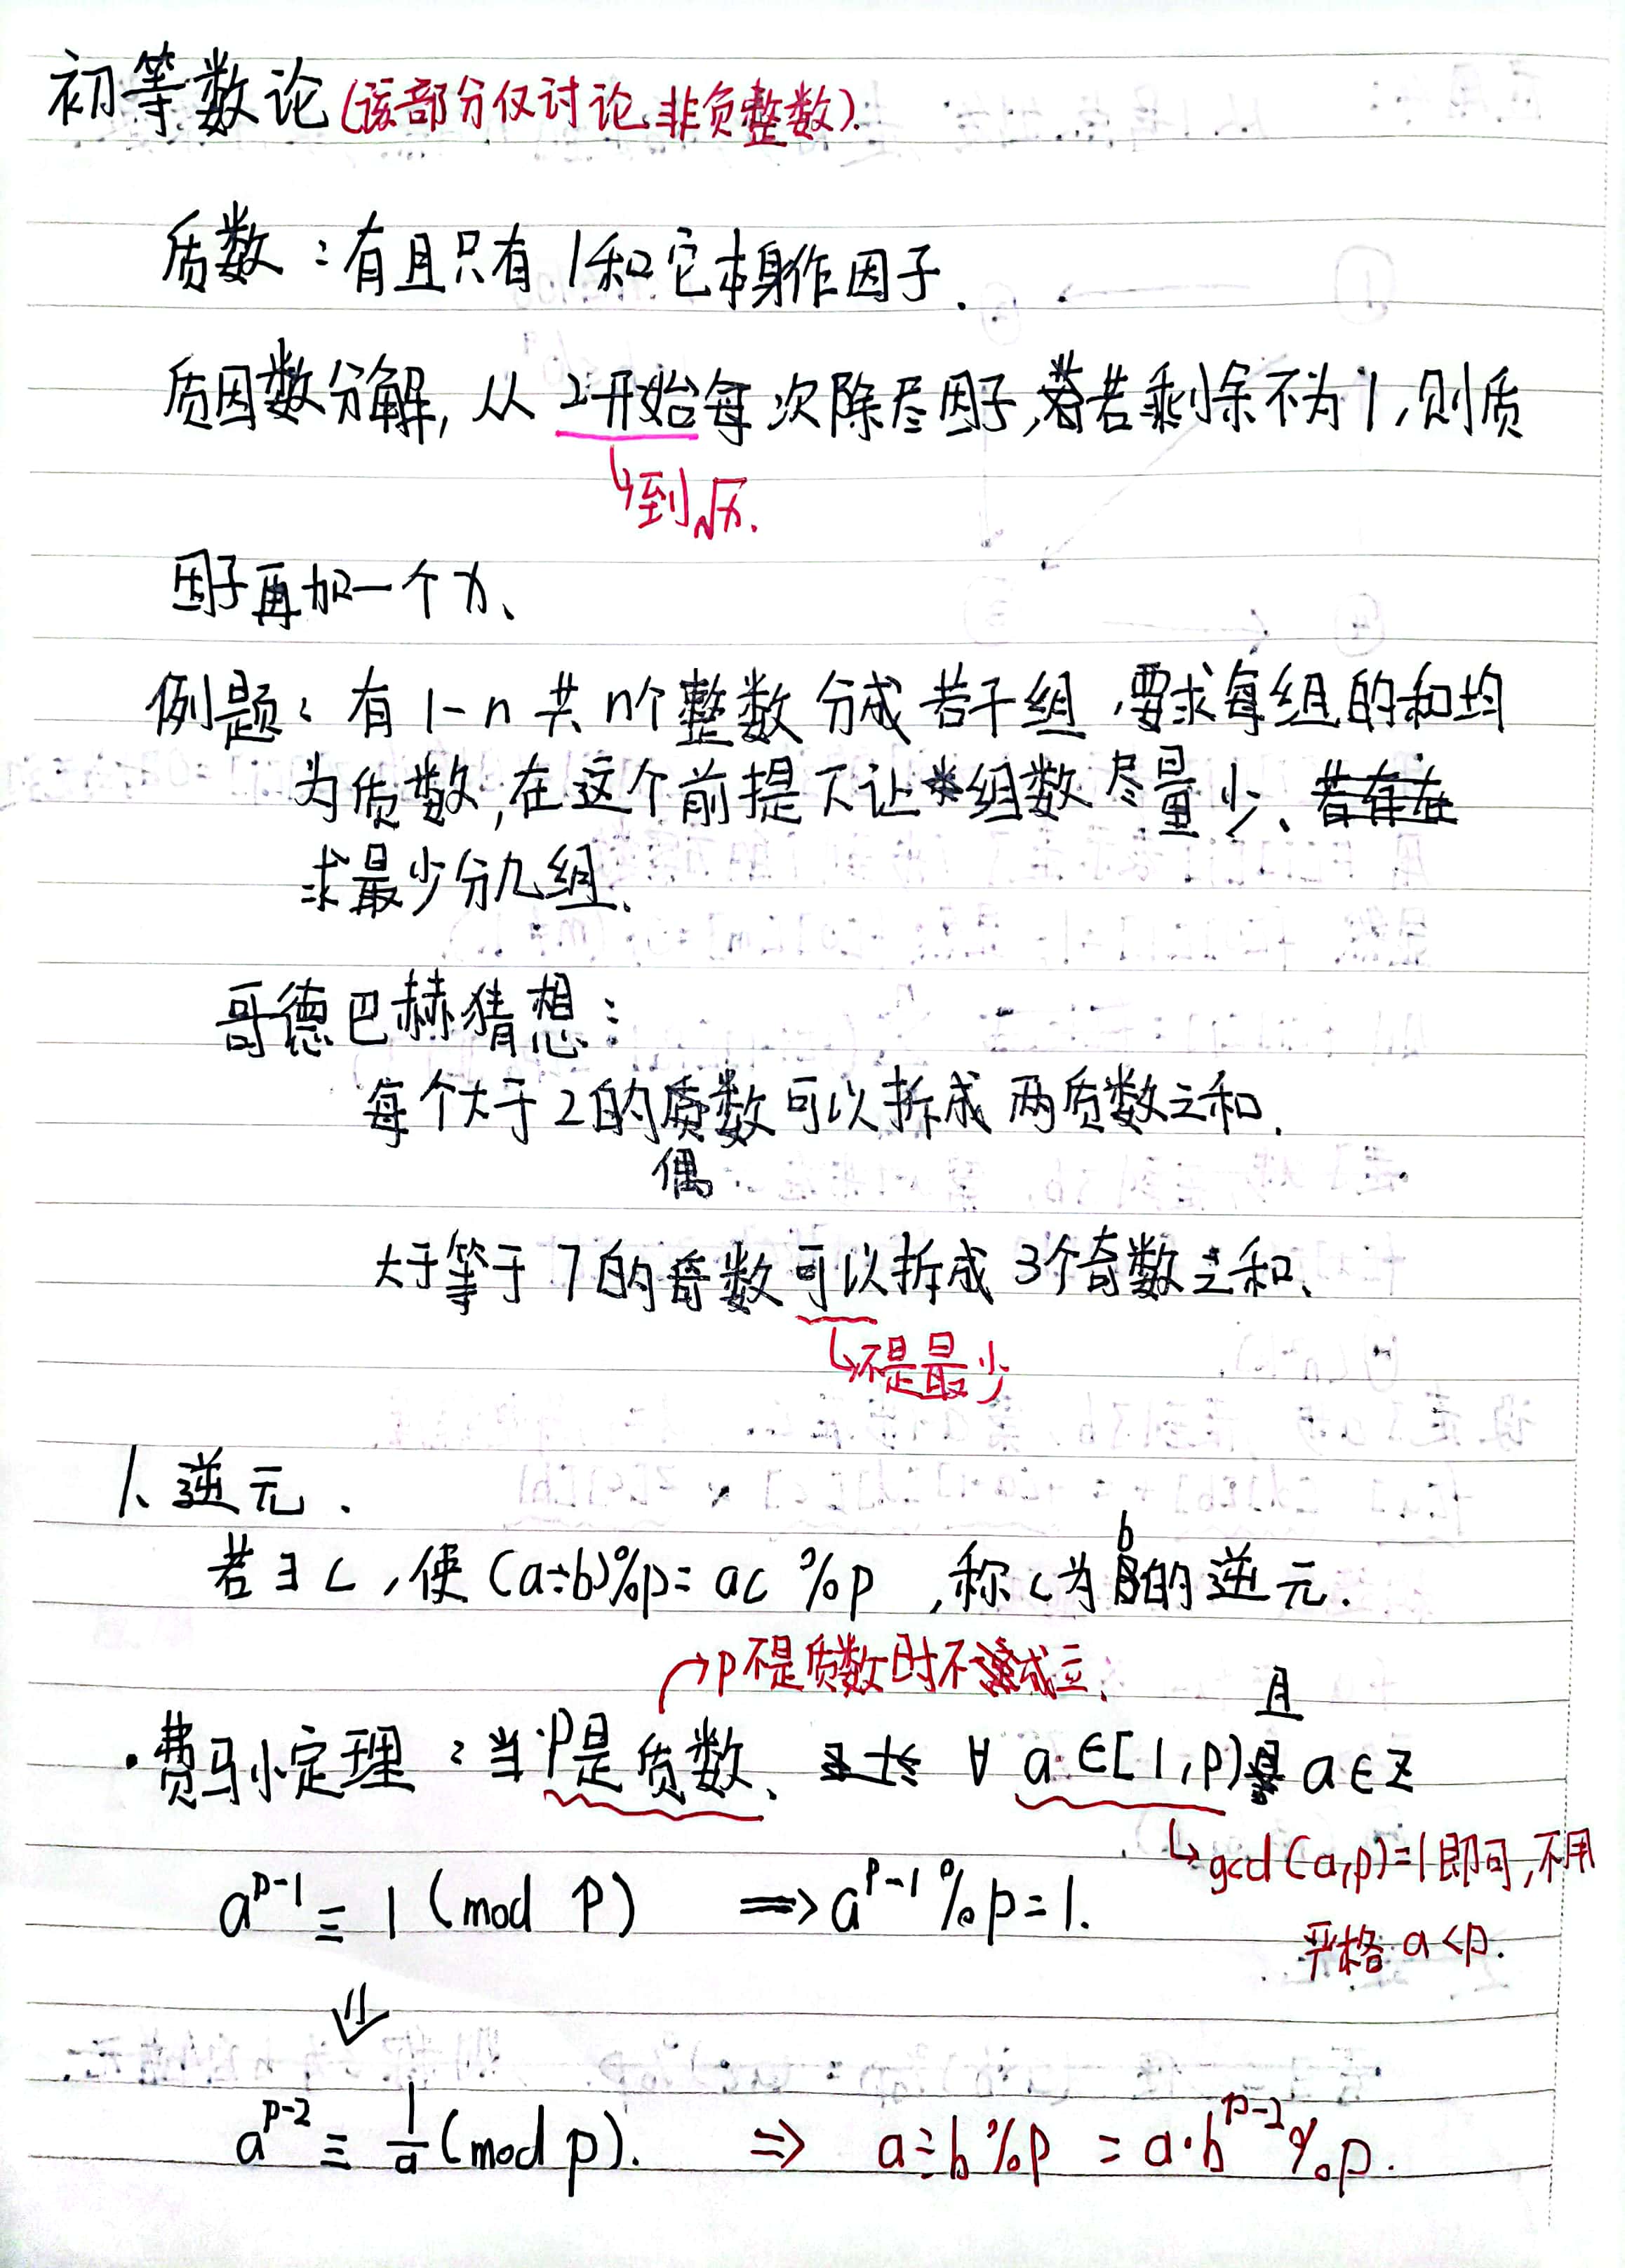 初等数论(该部分仅讨论非负整数).
质数:有且只有1和它本身作因子.
质因数分解,从2开始每次除尽因子,若若剩余不为1,则质
↳到√x.
因子再加一个x、
例题:有1-n共n个整数分成若干组,要求每组的和均
为质数,在这个前提下让组数尽量少、若存在
求最少分几组、
哥德巴赫猜想:
每个大于2的质数可以拆成两质数之和.
偶
大于等于7的奇数可以拆成3个奇数之和、
↳不是最少
1、逆元.
b
若∃c,使(a÷b)%p=ac %p,称c为的逆元.
→p不是质数时不成立.
且
·费马小定理:当p是质数、∀a∈[1,p)a∈Z
↳gcd(a,p)=1即可,不用
a^{p-1}≡1(mod p) ⟹a^{p-1}%p=1.
严格a<p.
⇓
a^{p-2}≡1/a(mod p). ⇒ a÷b%p=a·b^{p-2}%p.